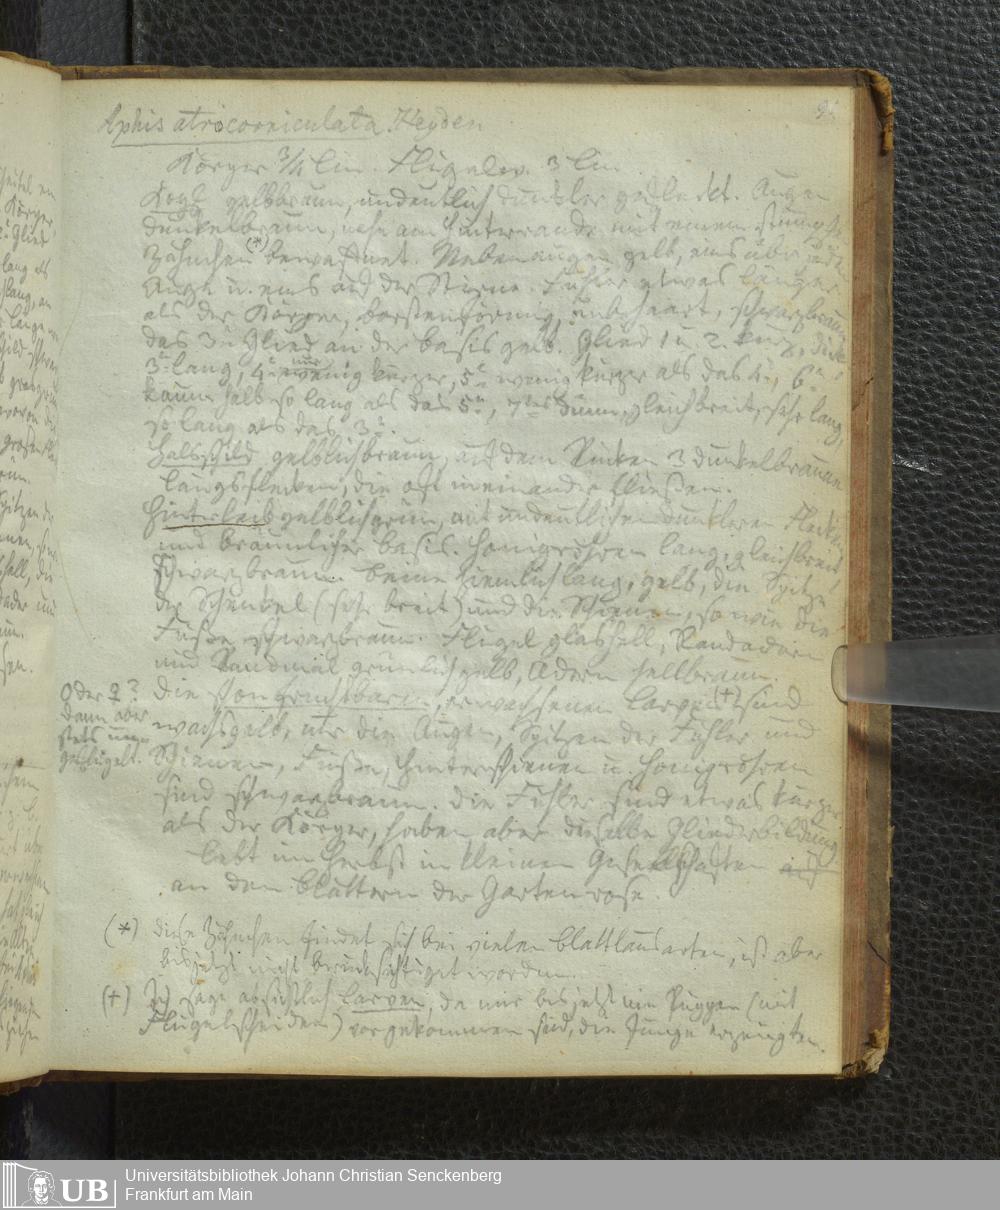 Aphis atrocorniculata Heyden
Körper 3/4 lin. Flügelw. 3 lin.
Kopf gelbbraun, undeutlich dunkler gefleckt. Augen
dunkelbraun, nahe am Hinterrande mit einem stumpfen
Zähnchen (*) bewaffnet. Nebenaugen gelb, eins über jedem
Auge u. eins auf der Stirne. Fühler etwas länger
als der Körper, borstenförmig, unbehaart, schwarzbraun
das 3te Glied an der Basis gelb. Glied 1 u. 2 kurz, dick
3te lang, 4te nur wenig kürzer, 5te wenig kürzer als das 4te, 6te
kaum halb so lang als das 5te, 7tes dünn, gleichbreit, sehr lang,
so lang als das 3te.
Halsschild gelblichbraun, auf dem Rücken 3 dunkelbraunen
Längsflecken, die oft ineinander fließen.
Hinterleib gelblichgrün, mit undeutlichen dunkleren Flecken
und bräunlicher Basis. Honigröhren lang, gleichbreit
schwarzbraun. Beine ziemlich lang, gelb, die Spitze
der Schenkel (sehr breit) und der Schienen, so wie die
Füße, schwarzbraun. Flügel glashell, Randadern
und Randmal grünlichgelb, Adern hellbraun.
Die schon fruchtbaren, erwachsenen Larven (+) sind
wachsgelb, nur die Augen, Spitzen der Fühler und
Schienen, Füße, Hinterschienen u. Honigröhren
sind schwarzbraun. Die Fühler sind etwas kürzer
als der Körper, haben aber dieselbe Gliederbildung
Lebt im Herbst in kleinen Gesellschaften auf
an den Blättern der Gartenrose.
Oder ♀?
Dann aber
stets un-
geflügelt.
(*) diese Zähnchen findet sich bei vielen Blattlausarten, ist aber
bis jetzt nicht berücksichtiget worden.
(+) Ich sage absichtlich Larven, da mir bis jetzt nie Puppen (mit
Flügelscheiden) vorgekommen sind, die Junge erzeugten.
UB
Universitätsbibliothek Johann Christian Senckenberg
Frankfurt am Main